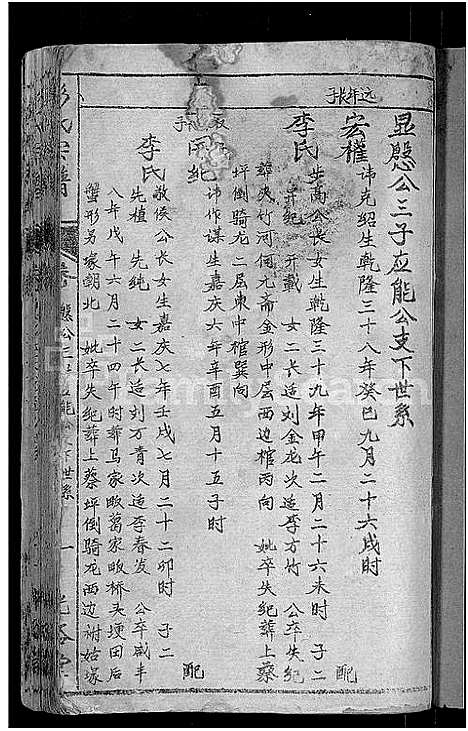 显慇公三子应能公支下世系
远年长子
宏權 讳克绍生乾隆三十八年癸巳九月二十六戌时 配
李氏 生乾隆三十九年甲午二月二十六未时 子二
开纪 开载 女二长造刘金龙次造李方竹 公卒失纪
葬夹竹河何九斋金形中层西边棺丙向 妣卒失纪葬上蔡
坪倒骑龙二层东中棺巽向
纪 讳作谋生嘉庆六年辛酉五月十五子时 配
李氏 敦俟公长女生嘉庆七年壬戌七月二十二卯时 子二
先植 先纯 女二长造刘万青次造李春发 公卒咸丰
八年戊午六月二十四午时葬马家畈葛家畈桥头埂田后
蟹形另冢朝北 妣卒失纪葬上蔡坪倒骑龙西边祔姑塚
氏宗谱
慇公三子应能公支下世系
一